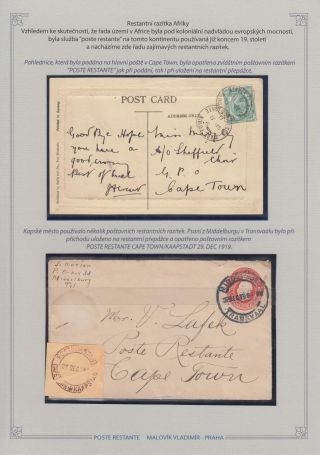 Restantní razítka Afriky
Vzhledem ke skutečnosti, že řada území v Africe byla pod koloniální nadvládou evropských mocností,
byla služba "poste restante" na tomto kontinentu používaná již koncem 19. století
a nacházíme zde řadu zajímavých restantních razítek.
Pohlednice, která byla podána na hlavní poště v Cape Town, byla opatřena zvláštním poštovním razítkem
"POSTE RESTANTE" jak při podání, tak i při uložení na restantní přepážce.
POST CARD
Good Bye Hope
you have a
good crossing
Best of luck
Miss
C/o Sheffield
Choir
G. P. O
Cape Town
Kapské město používalo několik poštovních restantních razítek. Psaní z Middelburgu v Transvaalu bylo při
příchodu uloženo na restantní přepážce a opatřeno poštovním razítkem
POSTE RESTANTE CAPE TOWN/KAAPSTADT 29. DEC 1919.
P. O.
TRANSVAAL
Poste Restante
Cape Town
POSTE RESTANTE MALOVÍK VLADIMÍR - PRAHA